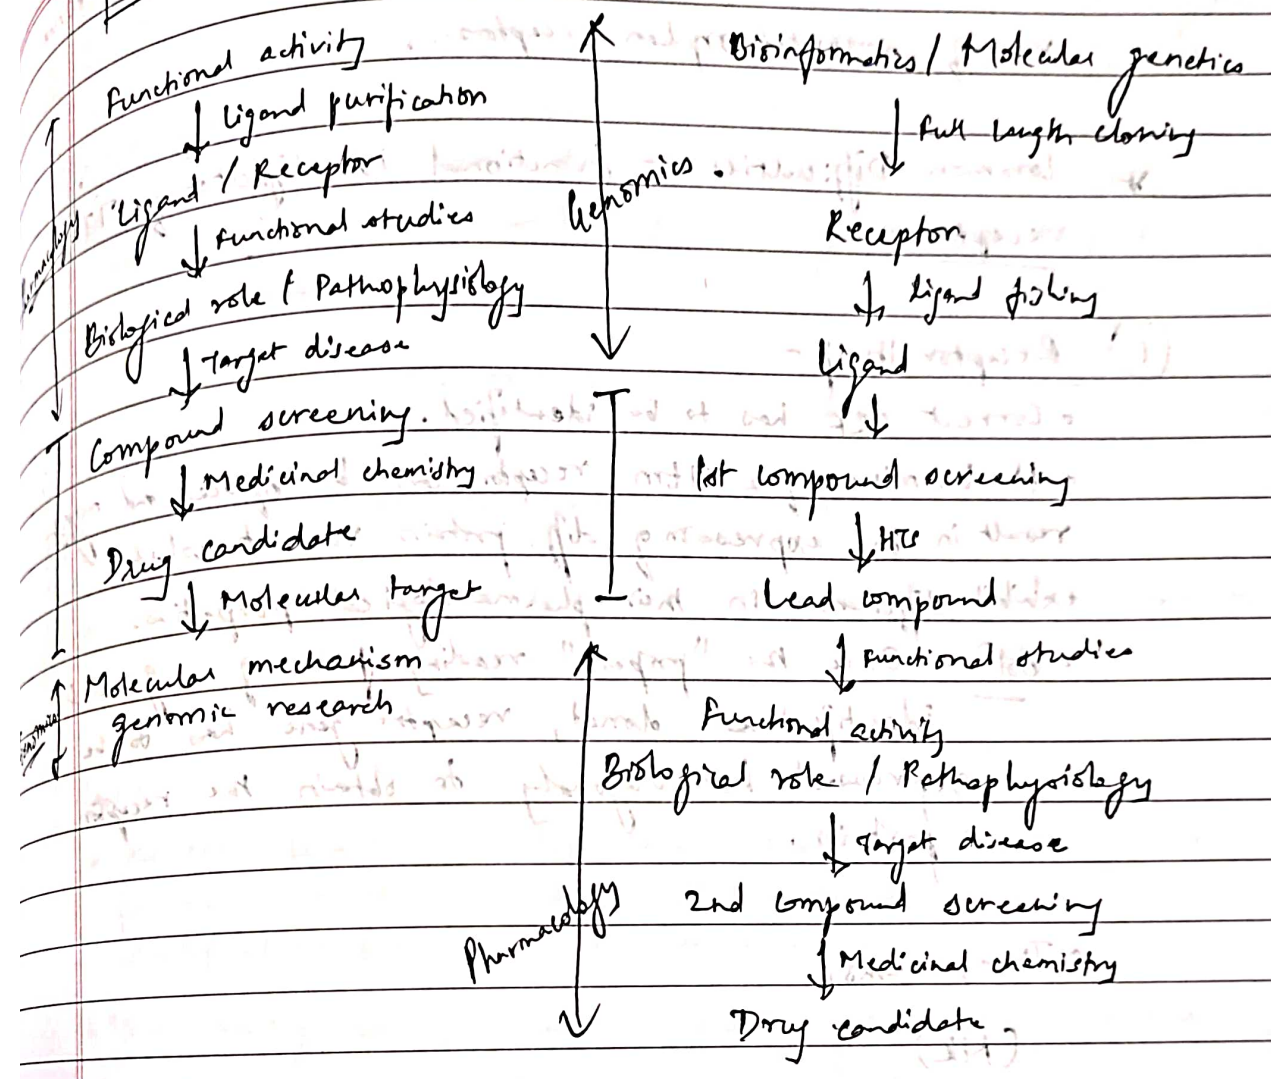 Functional activity
↓ Ligand purification
Ligand / Receptor
↓ Functional studies
Biological role / Pathophysiology
↓ Target disease
Compound screening.
↓ Medicinal chemistry
Drug candidate
↓ Molecular target
Molecular mechanism
genomic research
Genomics.
Pharmacology
Bioinformatics / Molecular genetics
↓ Full length cloning
Receptor
↓ Ligand fishing
Ligand
↓
1st compound screening
↓ HTS
Lead compound
↓ Functional studies
Functional activity
Biological role / Pathophysiology
↓ Target disease
2nd compound screening
↓ Medicinal chemistry
Drug candidate.